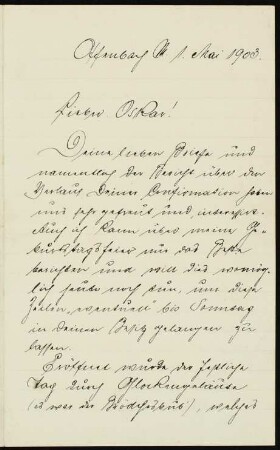 Offenbach M 1. Mai 1903.
Lieber Oskar!
Deine lieben Briefe und
namentlich der Bericht über den
Verlauf Deiner Confirmation haben
uns sehr gefreut und interessirt.
Auch ich kann über meine Ge-
burtstagsfeier nur das Beste
berichten und will dies womög-
lich heute noch tun, um diese
Zeilen, eventuell bis Sonntag
in Deinen Besitz gelangen zu
lassen.
Eröffnet wurde der festliche
Tag durch Glockengeläute
(es war ein), welches